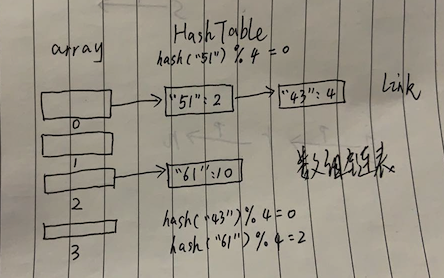 HashTable
array
hash("51") % 4 = 0
"51": 2
"43": 4
Link
0
1
"61":10
数组连表
2
hash("43") % 4 = 0
hash("61") % 4 = 2
3